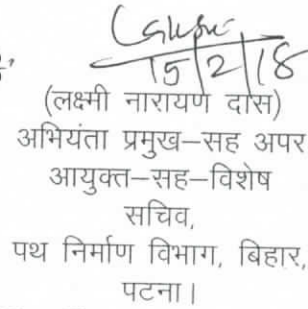 15/2/18
(लक्ष्मी नारायण दास)
अभियंता प्रमुख–सह अपर
आयुक्त–सह–विशेष
सचिव,
पथ निर्माण विभाग, बिहार,
पटना।